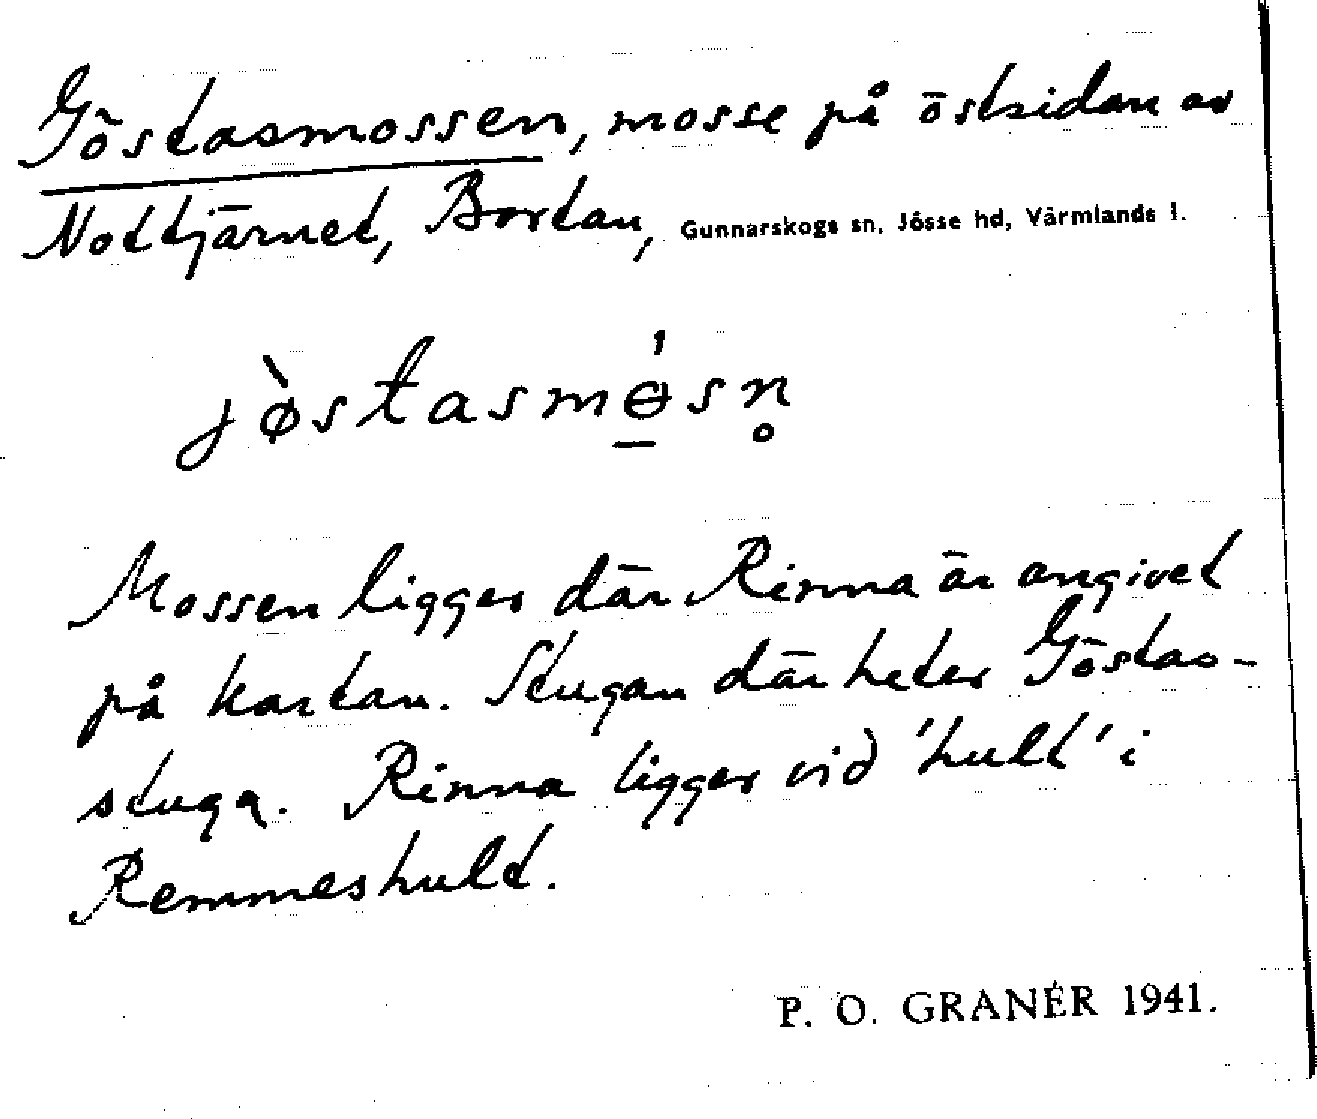 Göstasmossen, mosse på östsidan av
Nottjärnet, Bortan, Gunnarskogs sn, Jösse hd, Värmlands l.
jø̀stasmɵ̲́sn̥
Mossen ligger där Rinna är angivet
på kartan. Stugan där heter Göstas-
stuga. Rinna ligger vid 'hult' i
Remmeshult.
P. O. GRANÉR 1941.